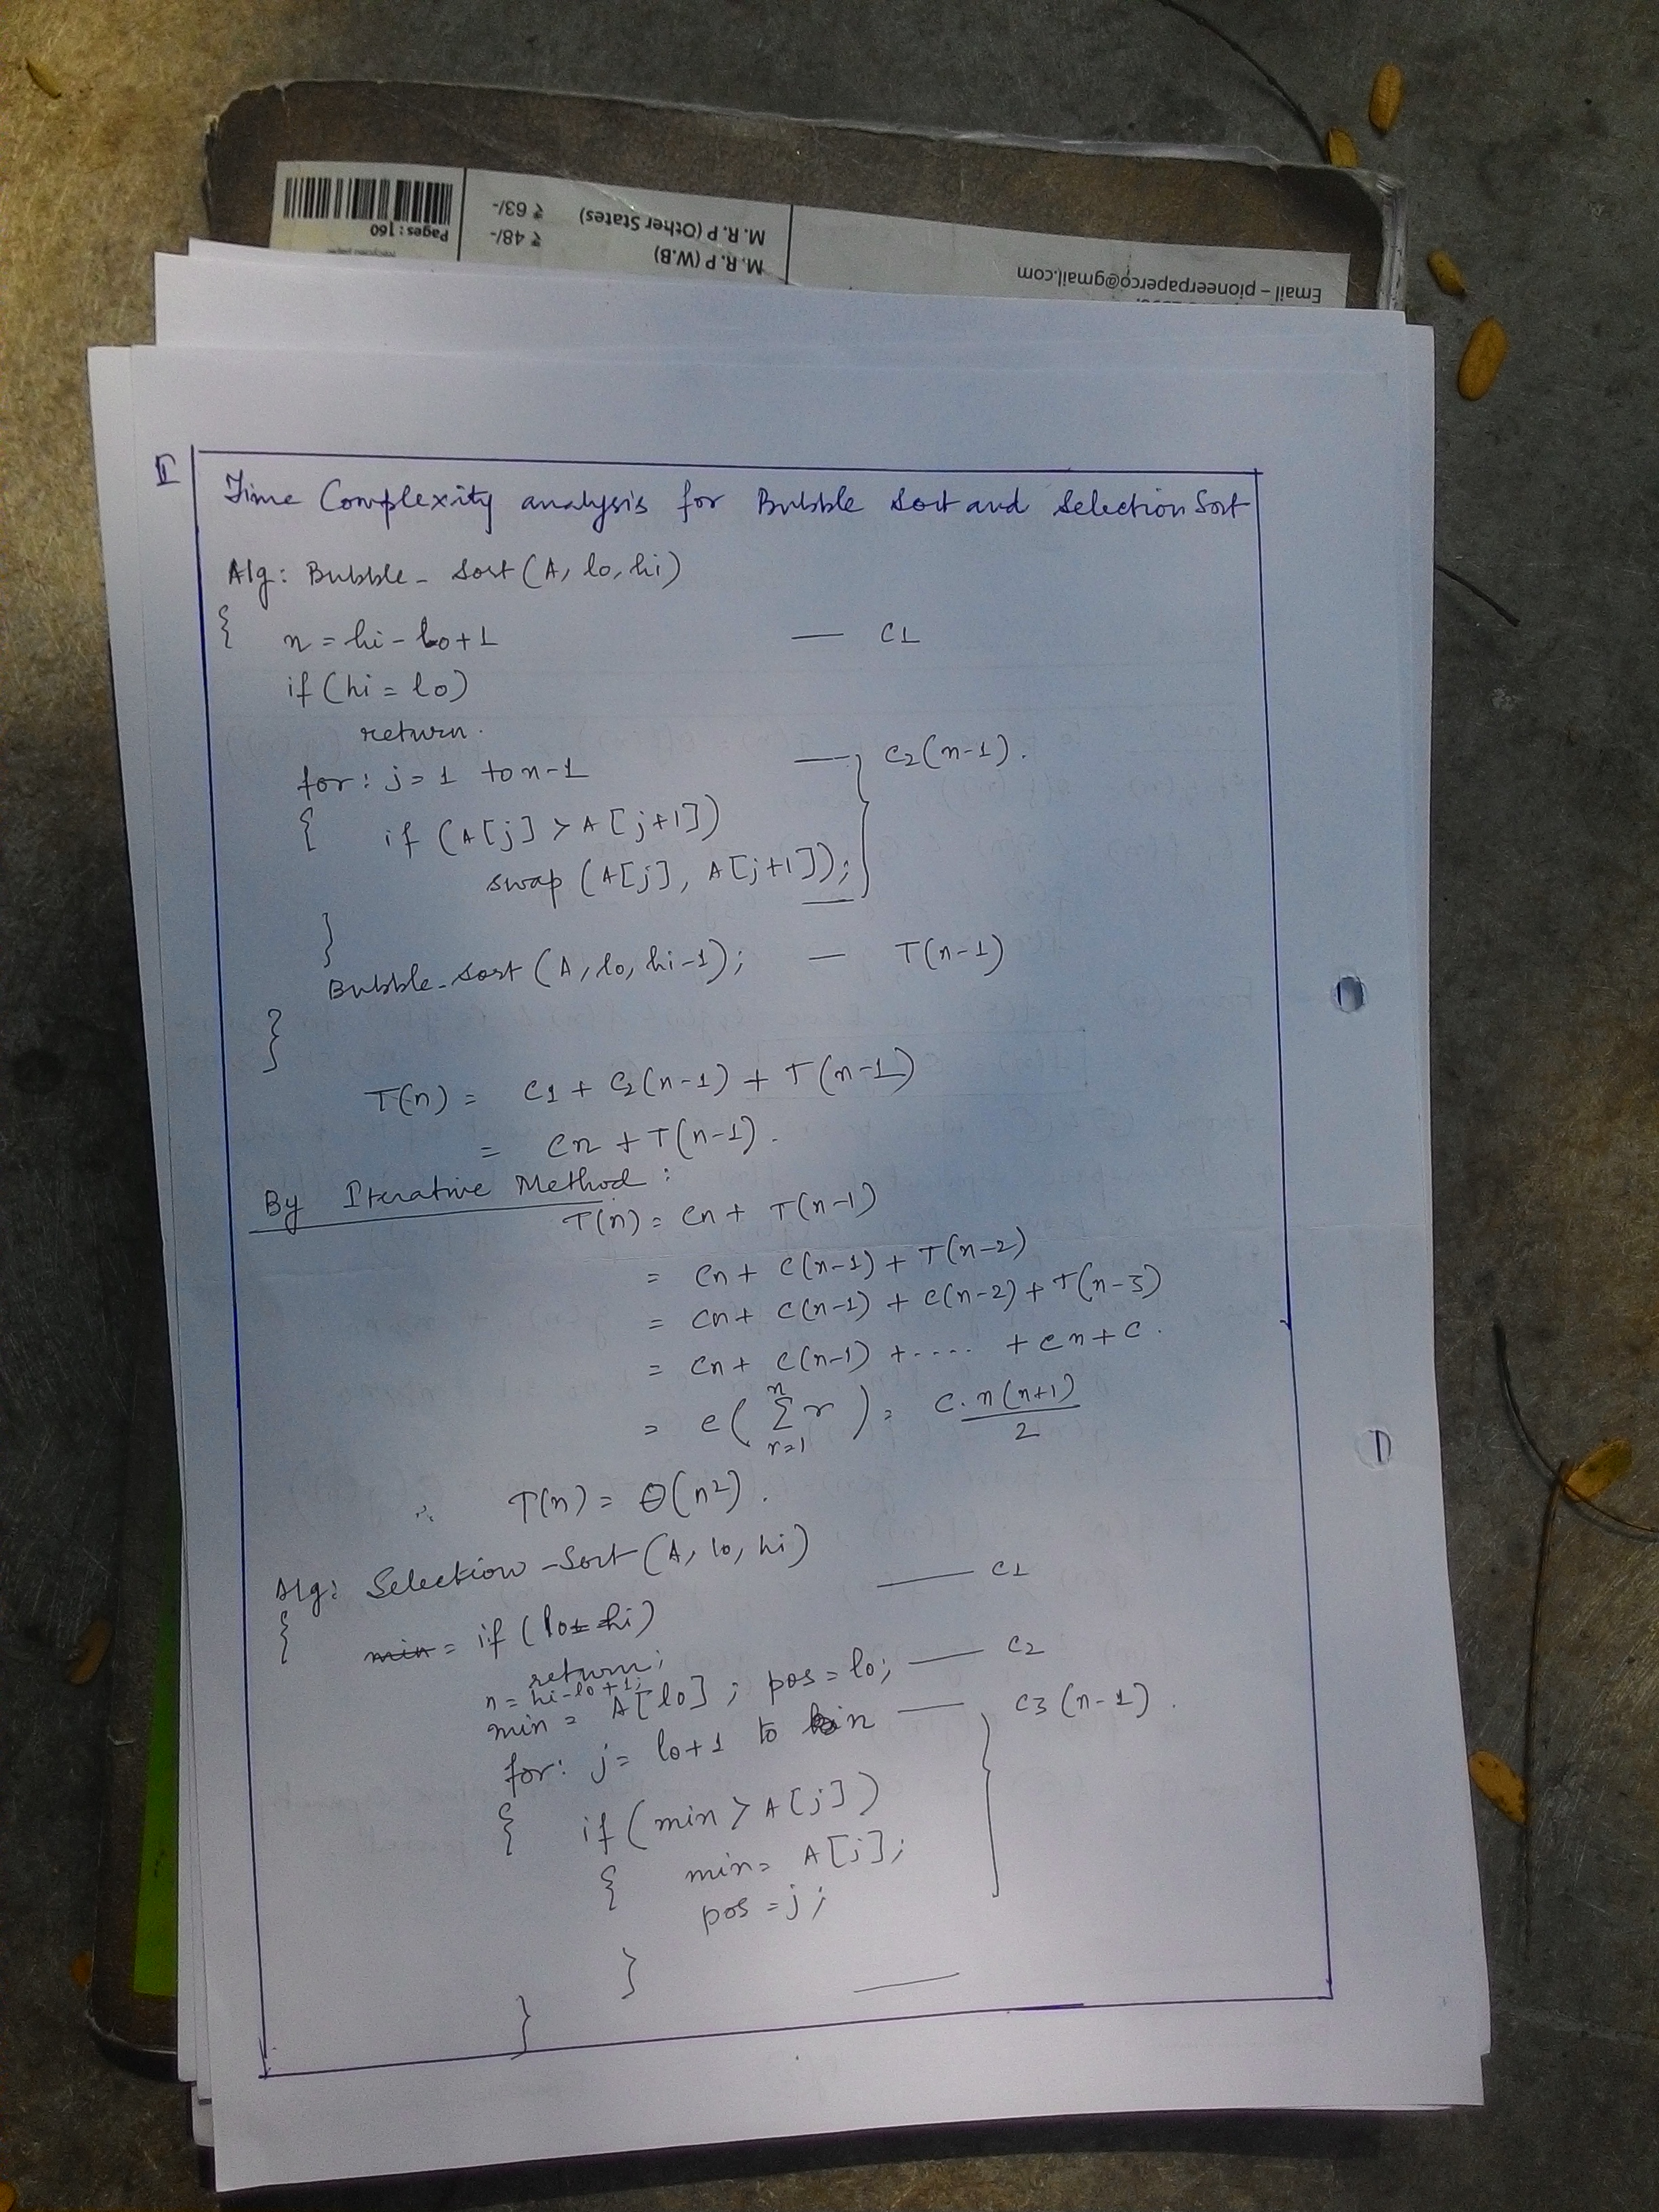 Time Complexity analysis for Bubble sort and Selection Sort
Alg: Bubble-sort (A, lo, hi)
{
n = hi - lo + 1 — C1
if (hi = lo)
return.
for: j = 1 to n-1 — C2(n-1).
{ if (A[j] > A[j+1])
swap (A[j], A[j+1]);
}
Bubble-sort (A, lo, hi-1); — T(n-1)
}
T(n) = C1 + C2(n-1) + T(n-1)
= Cn + T(n-1).
By Iterative Method:
T(n) = Cn + T(n-1)
= Cn + C(n-1) + T(n-2)
= Cn + C(n-1) + C(n-2) + T(n-3)
= Cn + C(n-1) + .... + Cn + C.
= C(∑ⁿᵣ₌₁ r) = C.n(n+1)/2
∴ T(n) = Θ(n²).
Alg: Selection-Sort (A, lo, hi)
{ — C1
if (lo = hi)
return;
n = hi-lo+1;
min = A[lo]; pos = lo; — C2
for: j = lo+1 to n — C3(n-1).
{ if (min > A[j])
{ min = A[j];
pos = j;
}
}
Email – pioneerpaperco@gmail.com
M. R. P (W.B) ₹ 48/-
M. R. P (Other States) ₹ 63/-
Pages : 160